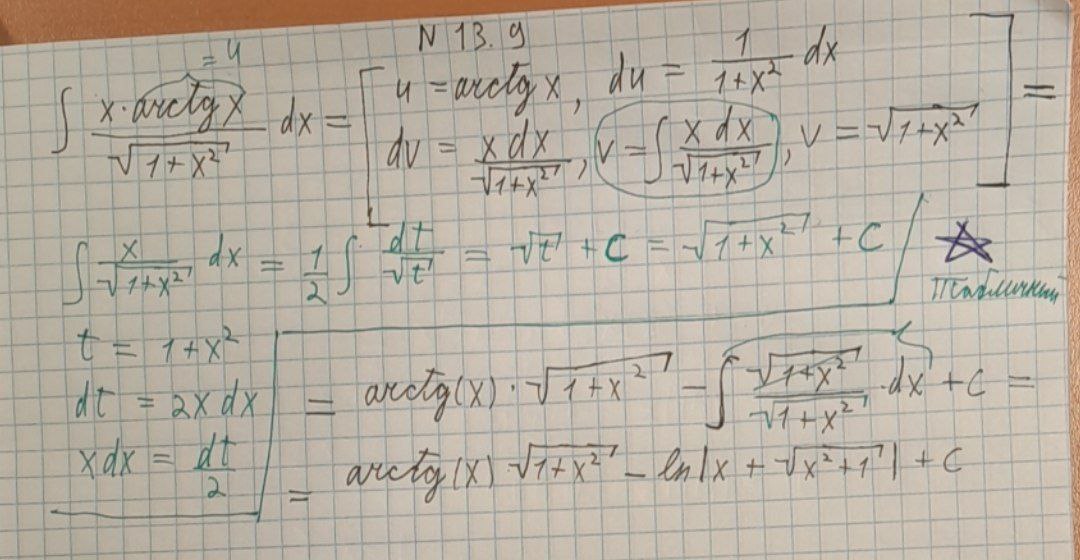 N 13.9
= u
∫ x·arctg x / √(1+x²) dx = [ u = arctg x, du = 1/(1+x²) dx
dv = x dx / √(1+x²), v = ∫ x dx / √(1+x²), v = √(1+x²) ] =
∫ x / √(1+x²) dx = 1/2 ∫ dt/√t = √t + C = √(1+x²) + C
Табличный
t = 1+x²
dt = 2x dx
x dx = dt/2
= arctg(x)·√(1+x²) − ∫ √(1+x²) / √(1+x²) · dx + C =
= arctg(x) √(1+x²) − ln|x + √(x²+1)| + C